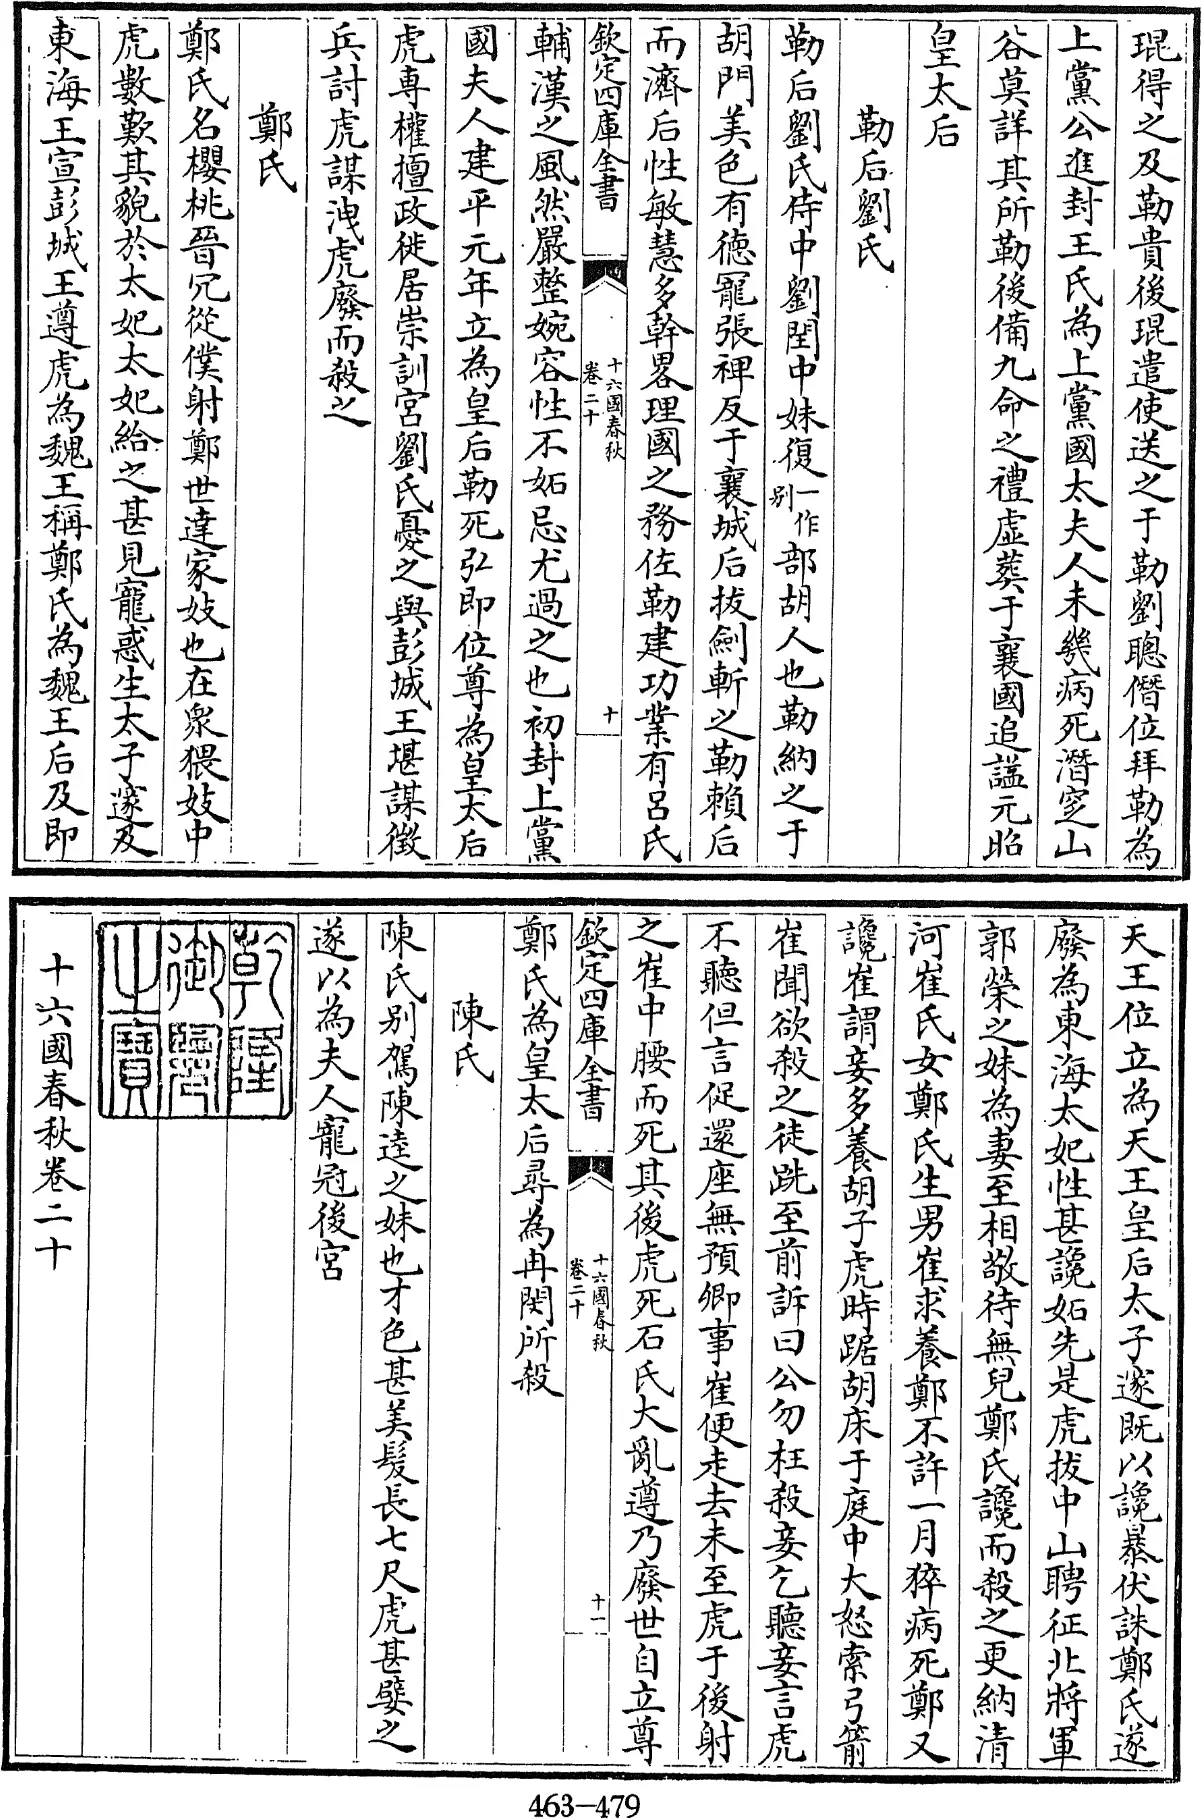 琨得之及勒貴後琨遣使送之于勒劉聰僭位拜勒為
上黨公進封王氏為上黨國太夫人未幾病死潛窆山
谷莫詳其所勒後備九命之禮虛葬于襄國追諡元昭
皇太后
勒后劉氏
勒后劉氏侍中劉閏中妹復一作别部胡人也勒納之于
胡門美色有徳寵張𥚹反于襄城后拔劍斬之勒賴后
而濟后性敏慧多幹畧理國之務佐勒建功業有呂氏
欽定四庫全書
十六國春秋
卷二十
十
輔漢之風然嚴整婉容性不妬忌尤過之也初封上黨
國夫人建平元年立為皇后勒死弘即位尊為皇太后
虎専權擅政徙居崇訓宮劉氏憂之與彭城王堪謀徵
兵討虎謀洩虎廢而殺之
鄭氏
鄭氏名櫻桃晉冗從僕射鄭世達家妓也在衆猥妓中
虎數歎其貌於太妃太妃給之甚見寵惑生太子邃及
東海王宣彭城王遵虎為魏王稱鄭氏為魏王后及即
天王位立為天王皇后太子邃既以讒暴伏誅鄭氏遂
廢為東海太妃性甚讒妬先是虎拔中山聘征北將軍
郭榮之妹為妻至相敬待無兒鄭氏讒而殺之更納清
河崔氏女鄭氏生男崔求養鄭不許一月猝病死鄭又
讒崔謂妾多養胡子虎時踞胡床于庭中大怒索弓箭
崔聞欲殺之徒跣至前訴曰公勿枉殺妾乞聽妾言虎
不聽但言促還座無預卿事崔便走去未至虎于後射
之崔中腰而死其後虎死石氏大亂遵乃廢世自立尊
欽定四庫全書
十六國春秋
卷二十
十一
鄭氏為皇太后尋為冉閔所殺
陳氏
陳氏别駕陳逵之妹也才色甚美髮長七尺虎甚嬖之
遂以為夫人寵冠後宮
乾隆御覽之寶
十六國春秋卷二十
463—479